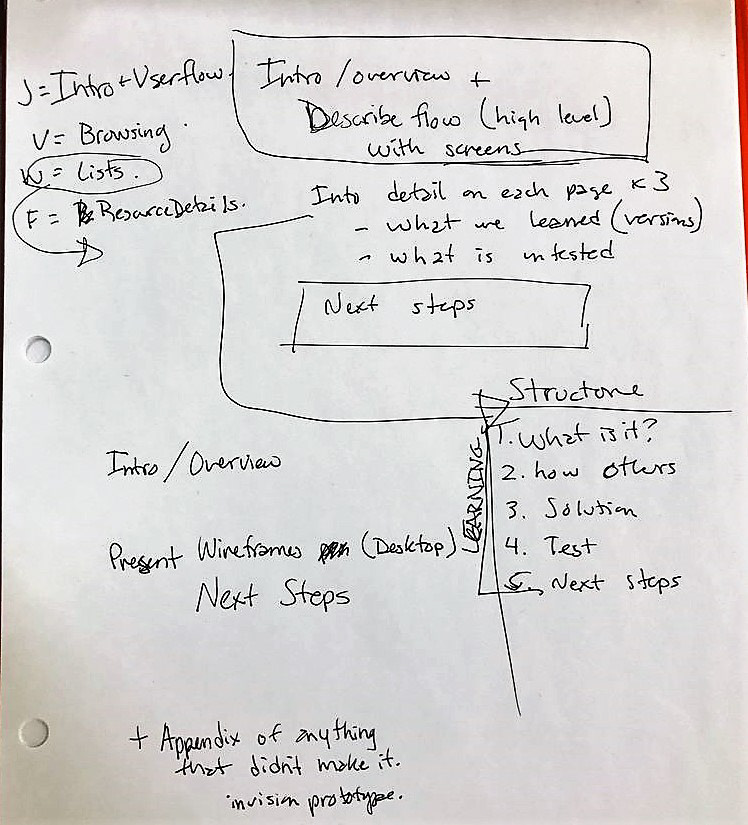 J = Intro + Userflow
V = Browsing
W = Lists.
F = Resource Details.
Intro / overview +
Describe flow (high level)
with screens
Into detail on each page x 3
- what we learned (versions)
- what is untested
Next steps
Structure
1. What is it?
2. how others
3. Solution
4. Test
5. Next steps
LEARNING
Intro / Overview
Present Wireframes (Desktop)
Next Steps
+ Appendix of anything
that didn't make it.
invision prototype.